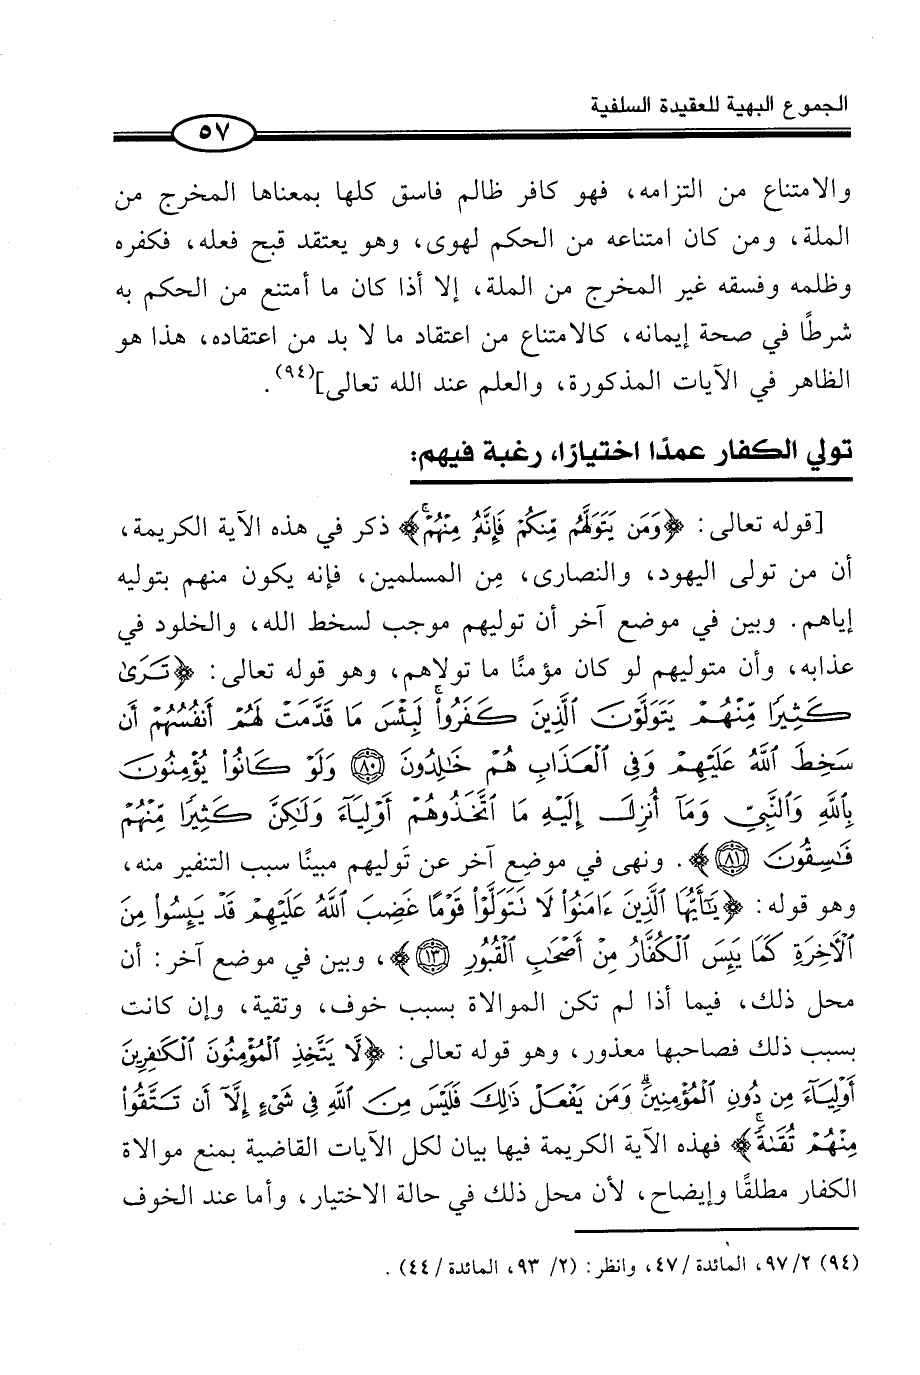 الجموع البهية للعقيدة السلفية
٥٧
والامتناع من التزامه، فهو كافر ظالم فاسق كلها بمعناها المخرج من
الملة، ومن كان امتناعه من الحكم لهوى، وهو يعتقد قبح فعله، فكفره
وظلمه وفسقه غير المخرج من الملة، إلا أذا كان ما أمتنع من الحكم به
شرطًا في صحة إيمانه، كالامتناع من اعتقاد ما لا بد من اعتقاده، هذا هو
الظاهر في الآيات المذكورة، والعلم عند الله تعالى](٩٤).
تولي الكفار عمدًا اختيارًا، رغبة فيهم:
[قوله تعالى: ﴿وَمَن يَتَوَلَّهُم مِّنكُمْ فَإِنَّهُۥ مِنْهُمْۗ﴾ ذكر في هذه الآية الكريمة،
أن من تولى اليهود، والنصارى، مِن المسلمين، فإنه يكون منهم بتوليه
إياهم. وبين في موضع آخر أن توليهم موجب لسخط الله، والخلود في
عذابه، وأن متوليهم لو كان مؤمنًا ما تولاهم، وهو قوله تعالى: ﴿تَرَىٰ
كَثِيرًا مِّنْهُمْ يَتَوَلَّوْنَ ٱلَّذِينَ كَفَرُواْۚ لَبِئْسَ مَا قَدَّمَتْ لَهُمْ أَنفُسُهُمْ أَن
سَخِطَ ٱللَّهُ عَلَيْهِمْ وَفِى ٱلْعَذَابِ هُمْ خَٰلِدُونَ ٨٠ وَلَوْ كَانُواْ يُؤْمِنُونَ
بِٱللَّهِ وَٱلنَّبِىِّ وَمَآ أُنزِلَ إِلَيْهِ مَا ٱتَّخَذُوهُمْ أَوْلِيَآءَ وَلَٰكِنَّ كَثِيرًا مِّنْهُمْ
فَٰسِقُونَ ٨١﴾. ونهى في موضع آخر عن تَوليهم مبينًا سبب التنفير منه،
وهو قوله: ﴿يَٰٓأَيُّهَا ٱلَّذِينَ ءَامَنُواْ لَا تَتَوَلَّوْاْ قَوْمًا غَضِبَ ٱللَّهُ عَلَيْهِمْ قَدْ يَئِسُواْ مِنَ
ٱلْأَخِرَةِ كَمَا يَئِسَ ٱلْكُفَّارُ مِنْ أَصْحَٰبِ ٱلْقُبُورِ ١٣﴾، وبين في موضع آخر: أن
محل ذلك، فيما أذا لم تكن الموالاة بسبب خوف، وتقية، وإن كانت
بسبب ذلك فصاحبها معذور، وهو قوله تعالى: ﴿لَّا يَتَّخِذِ ٱلْمُؤْمِنُونَ ٱلْكَٰفِرِينَ
أَوْلِيَآءَ مِن دُونِ ٱلْمُؤْمِنِينَۖ وَمَن يَفْعَلْ ذَٰلِكَ فَلَيْسَ مِنَ ٱللَّهِ فِى شَىْءٍ إِلَّآ أَن تَتَّقُواْ
مِنْهُمْ تُقَىٰةًۗ﴾ فهذه الآية الكريمة فيها بيان لكل الآيات القاضية بمنع موالاة
الكفار مطلقًا وإيضاح، لأن محل ذلك في حالة الاختيار، وأما عند الخوف
(٩٤) ٩٧/٢، المائدة /٤٧، وانظر: (٢/ ٩٣، المائدة /٤٤).